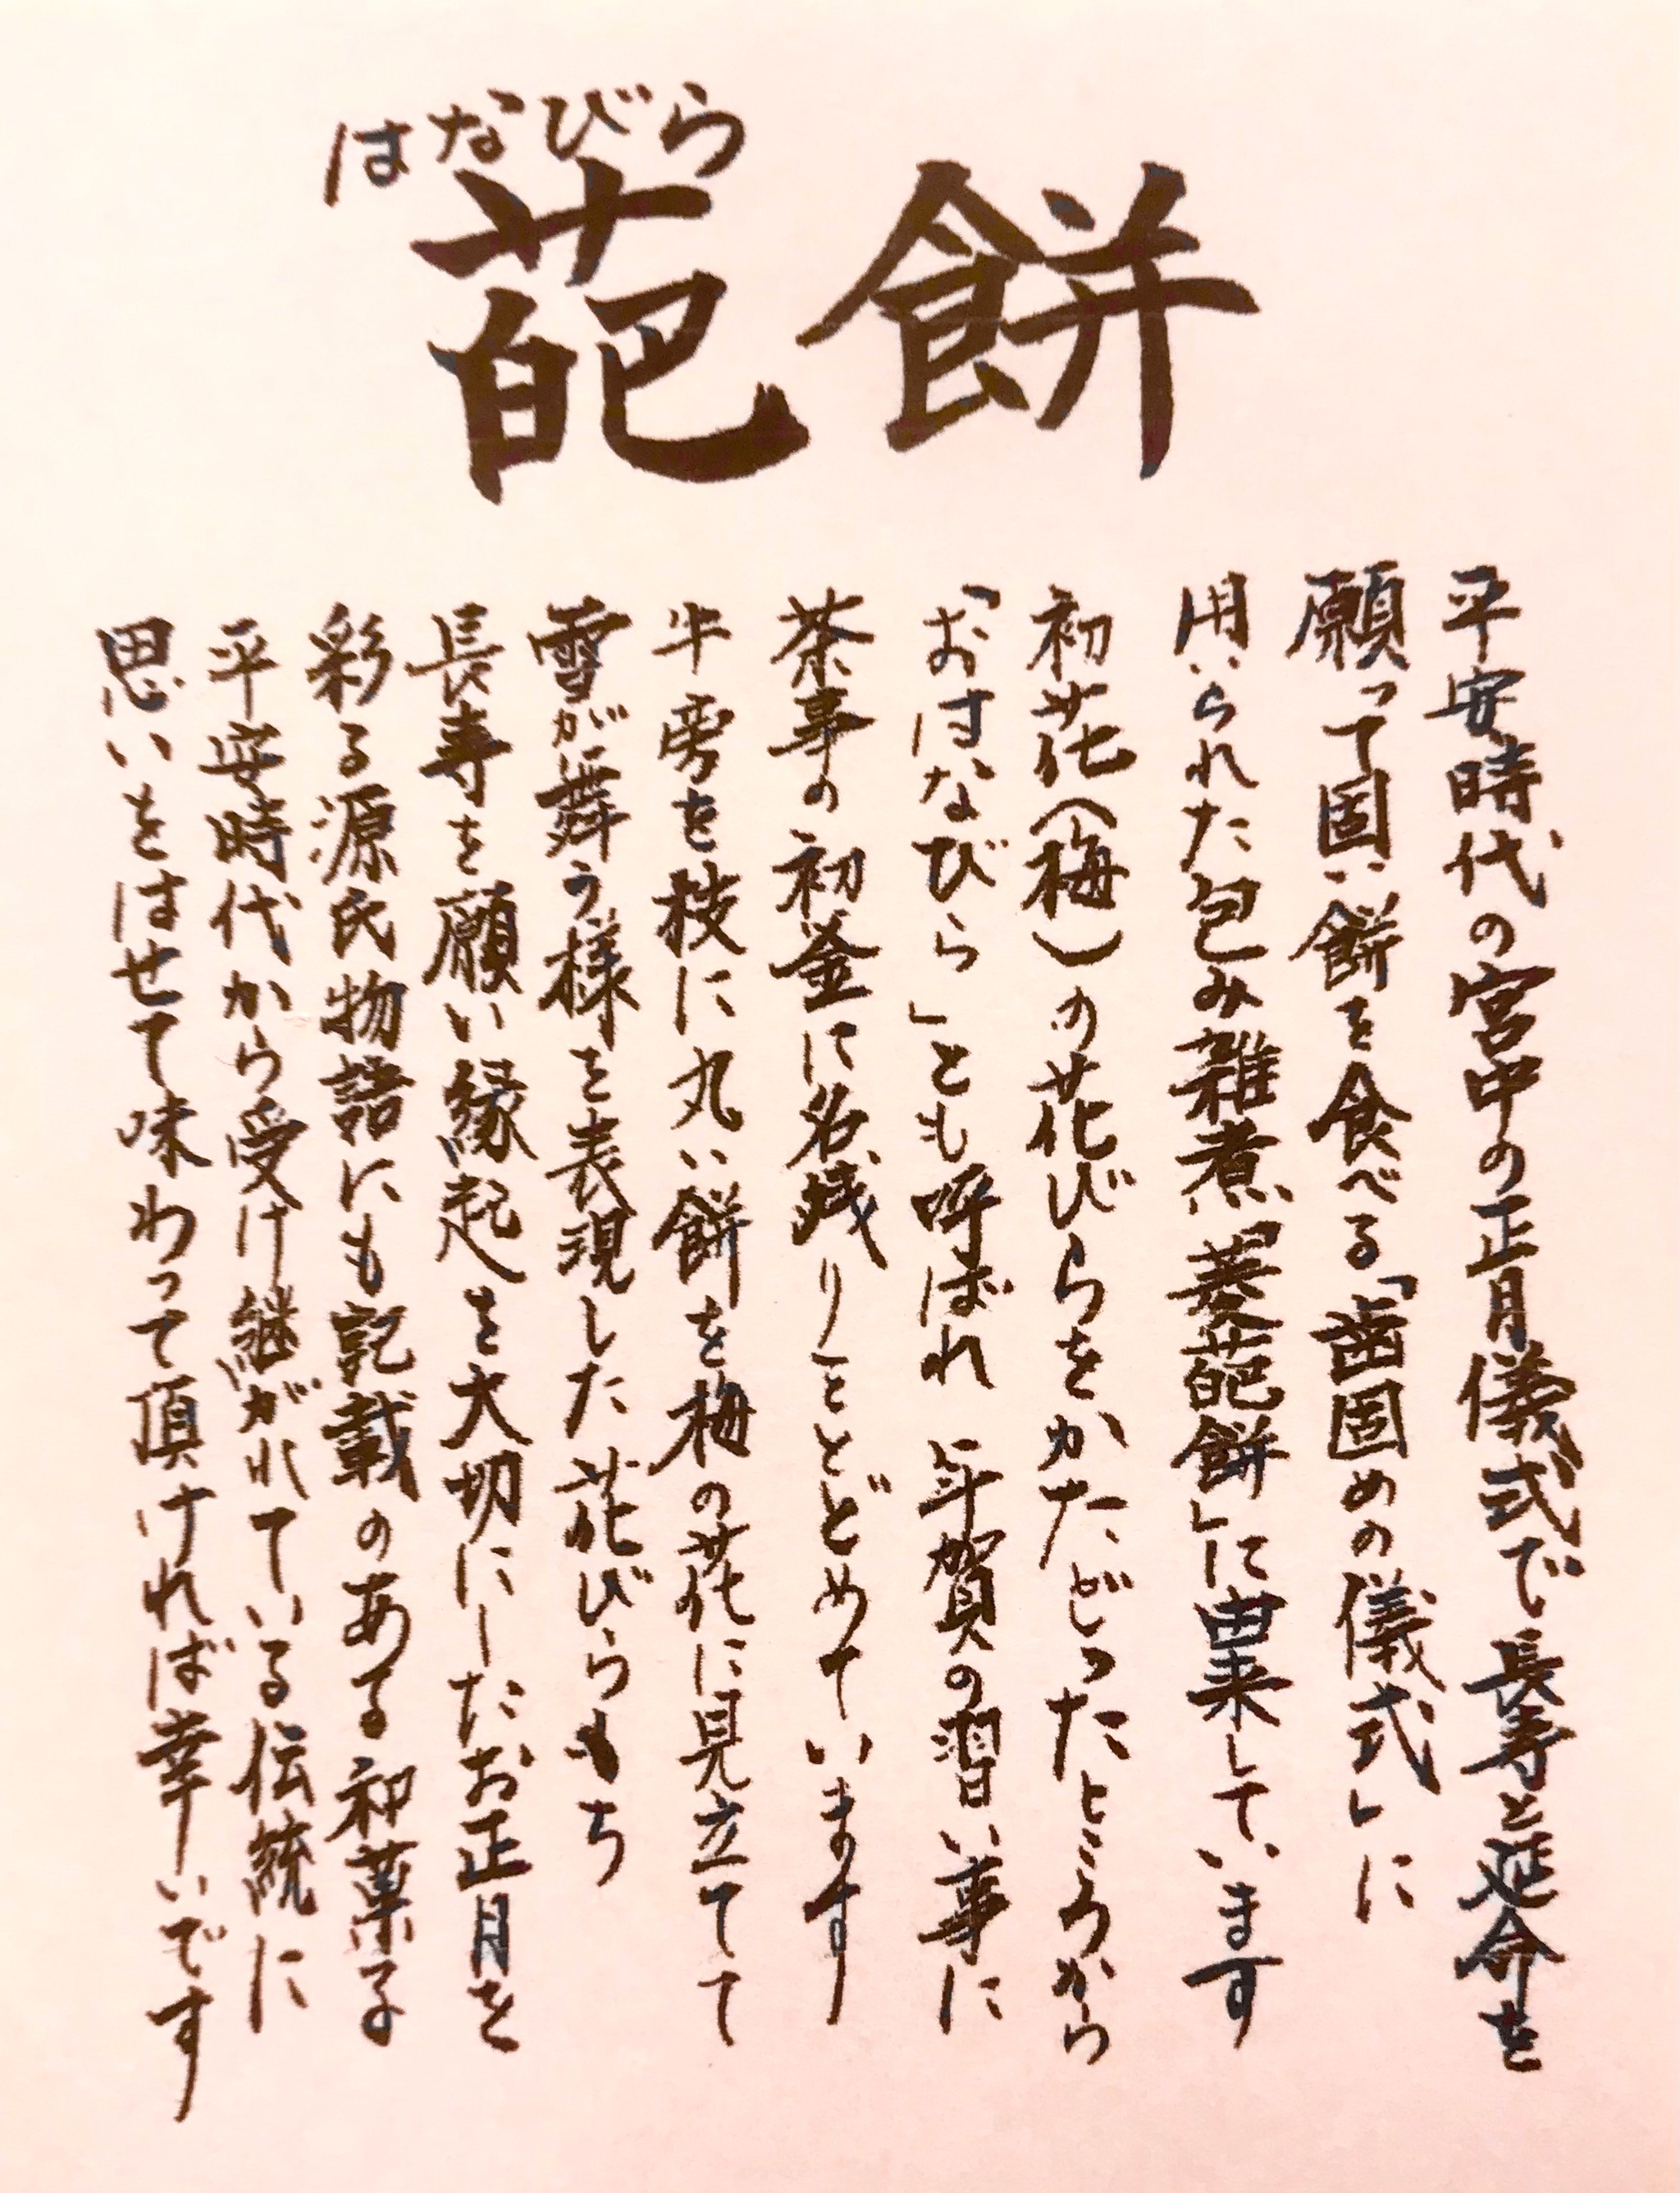 はなびら
葩餅
平安時代の宮中の正月儀式で 長寿と延命を
願って固い餅を食べる「歯固めの儀式」に
用いられた包み雑煮「菱葩餅」に由来しています
初花(梅)の花びらをかたどったところから
「おはなびら」とも呼ばれ 年賀の習い事に
茶事の初釜に名残りをとどめています
牛旁を枝に丸い餅を梅の花に見立てて
雪が舞う様を表現した花びらもち
長寿を願い縁起を大切にしたお正月を
彩る源氏物語にも記載のある和菓子
平安時代から受け継がれている伝統に
思いをはせて味わって頂ければ幸いです